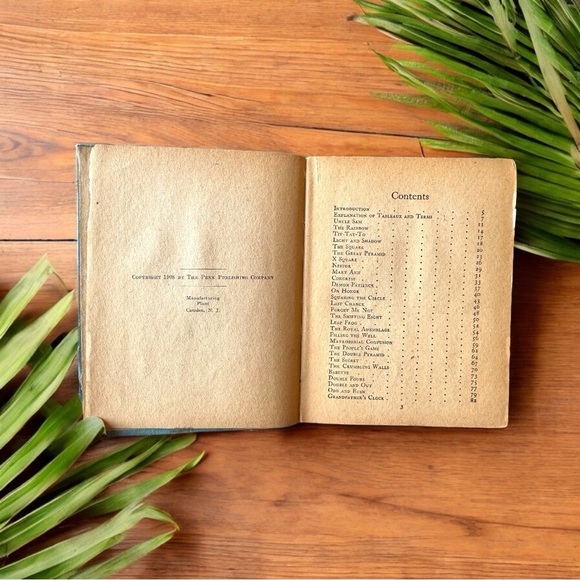 Copyright 1908 by The Penn Publishing Company
Manufacturing
Plant
Camden, N. J.
Contents
Introduction 5
Explanation of Tableaux and Terms 7
Uncle Sam 11
The Rainbow 14
Tit-Tat-To 17
Light and Shadow 18
The Square 20
The Great Pyramid 23
X Square 26
Kaiser 29
Mary Ann 31
Congress 33
Demon Patience 37
On Honor 40
Squaring the Circle 43
Last Chance 46
Forget Me Not 48
The Shifting Eight 50
Leap Frog 52
The Royal Assemblage 54
Filling the Well 56
Matrimonial Confusion 59
The People's Game 61
The Double Pyramid 64
The Secret 67
The Crumbling Walls 70
Babette 73
Double Fours 75
Double and Out 77
Odd and Even 79
Grandfather's Clock 82
3